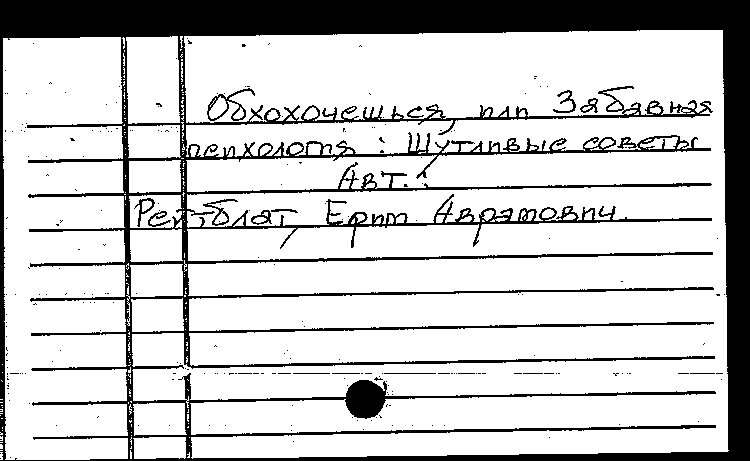 Обхохочешься, или Забавная
психология : Шутливые советы
Авт.:
Рейтблат, Ефим Аврамович.